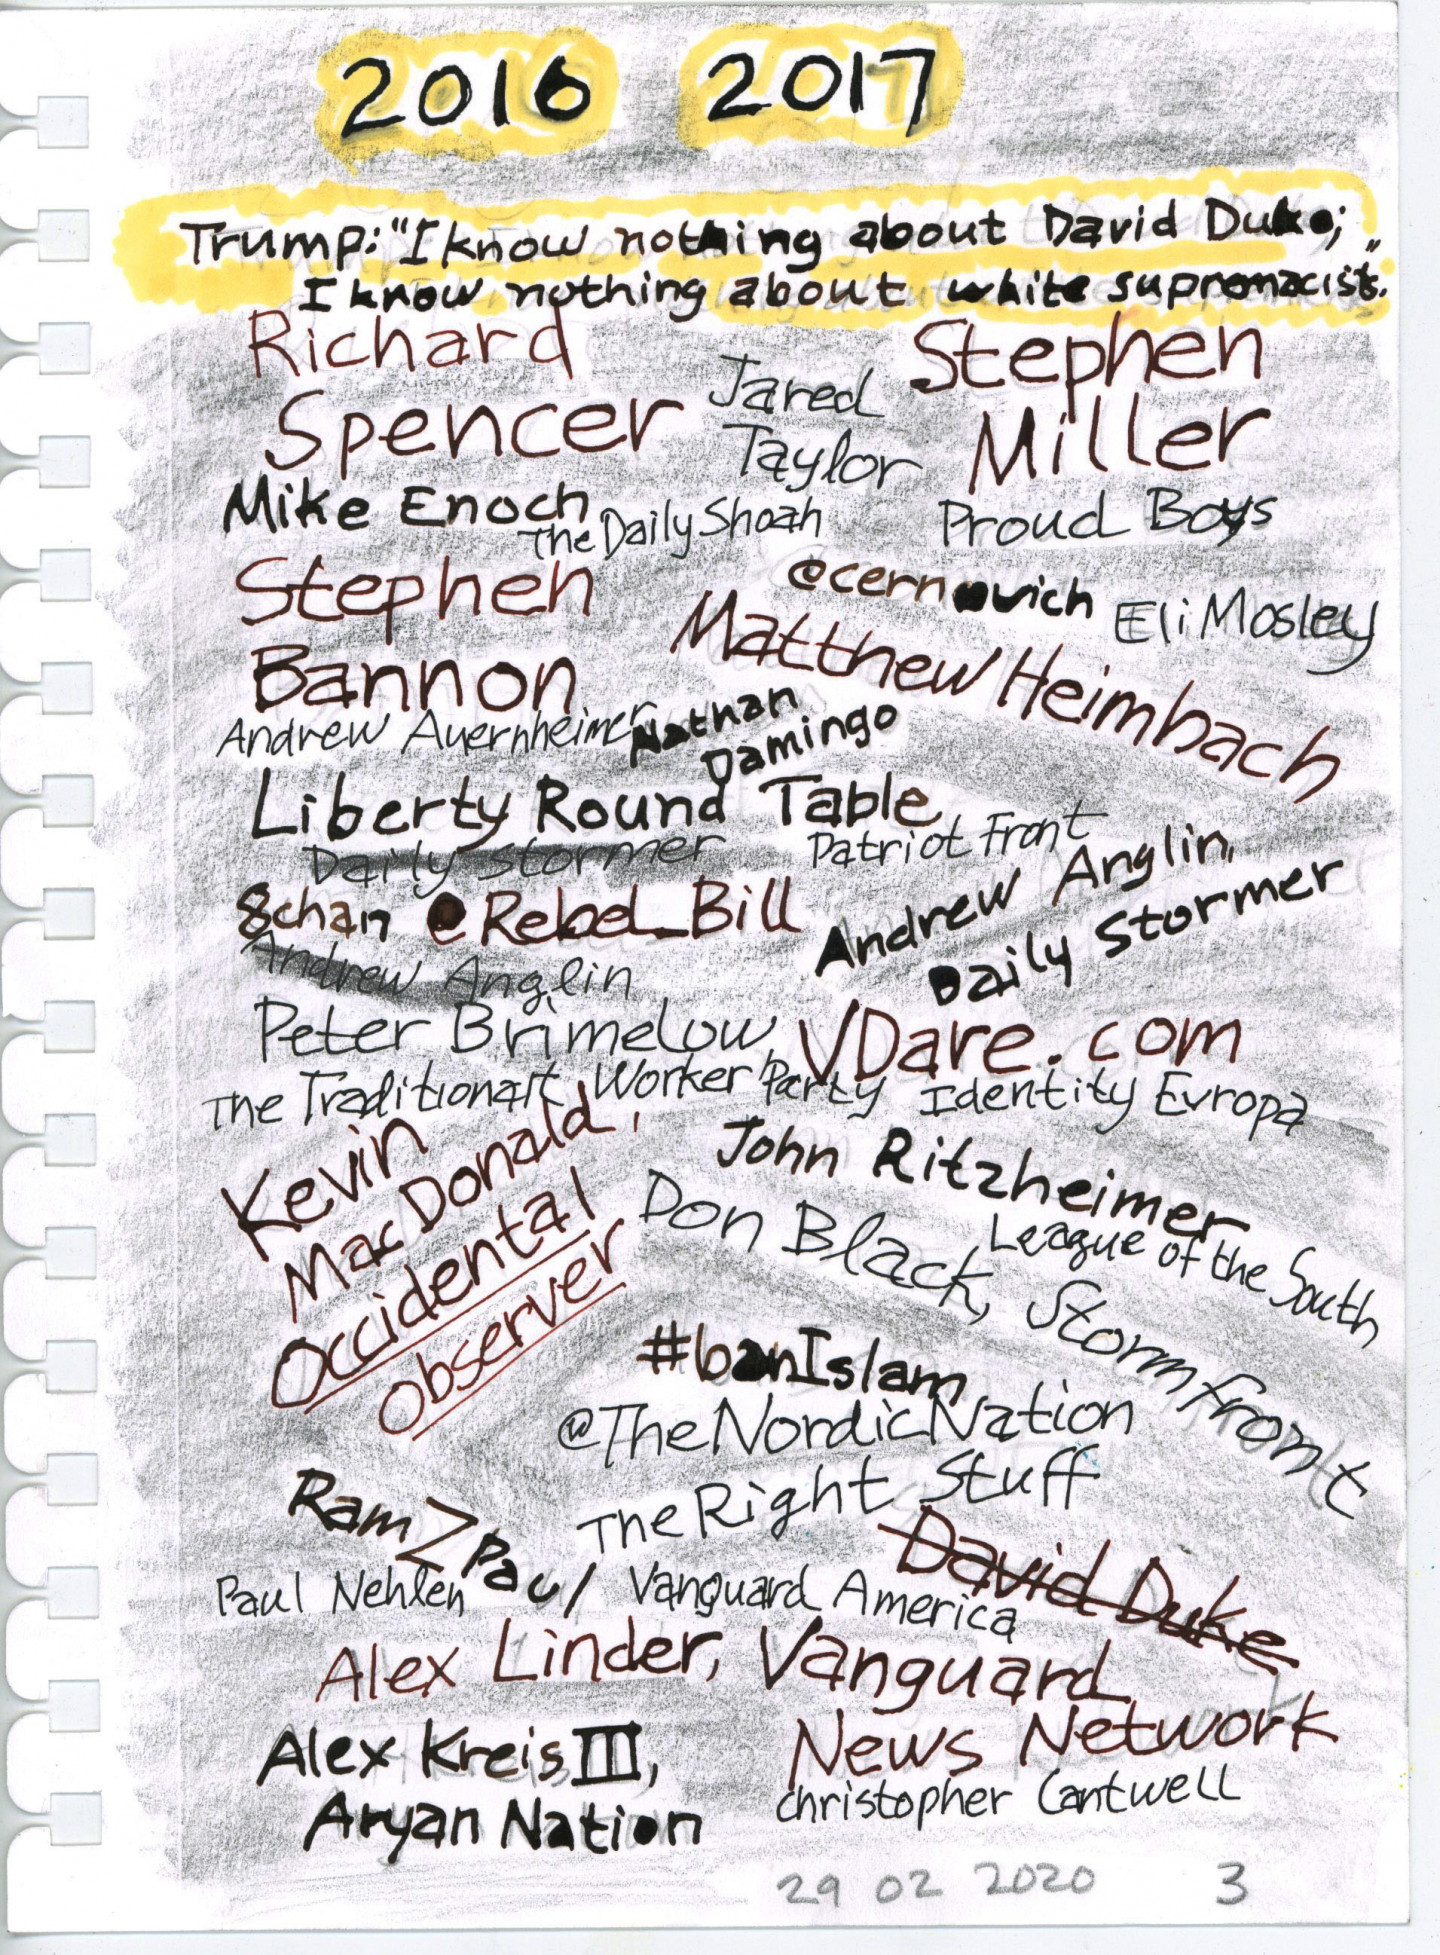 2016 2017
Trump: "I know nothing about David Duke;
I know nothing about white supremacist."
Richard
Spencer
Jared
Taylor
Stephen
Miller
Mike Enoch
The Daily Shoah
Proud Boys
Stephen
Bannon
@cernovich
Eli Mosley
Matthew Heimbach
Andrew Auernheimer
Nathan
Damingo
Liberty Round Table
Daily Stormer
Patriot Front
8chan @Rebel_Bill
Andrew Anglin,
Daily Stormer
Andrew Anglin
Peter Brimelow, VDare.com
The Traditionalt Worker Party Identity Evropa
Kevin
MacDonald,
Occidental
Observer
John Ritzheimer
League of the South
Don Black, Stormfront
#banIslam
@TheNordicNation
The Right Stuff
RamZPaul
David Duke
Paul Nehlen
Vanguard America
Alex Linder, Vanguard
News Network
Alex Kreis III,
Aryan Nation
Christopher Cantwell
29 02 2020 3